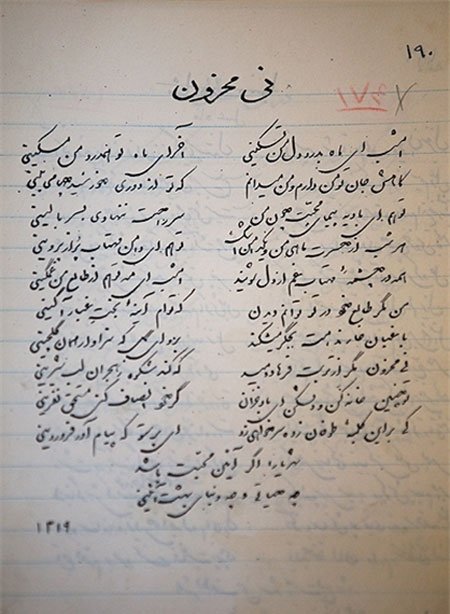 ۱۹۰
نی محزون
امشب ای ماه بدرد دل من تسکینی آخر ای ماه تو همدرد من مسکینی
کاهش جان تو من دارم و من میدانم که تو از دوری خورشید چها می بینی
تو هم ای بادیه پیمای محبت چون من سر راحت ننهادی بسر بالینی
هر شب از حسرت ماهی من و یکدامن اشک تو هم ای دامن مهتاب پر از پروینی
همه در چشمهٔ مهتاب غم از دل شویند امشب ای مه تو هم از طالع من غمگینی
من مگر طالع خود در تو توانم دیدن که توام آینهٔ بخت غبار آگینی
باغبان خار ندامت بجگر میشکند برو ای گل که سزاوار همان گلچینی
نی محزون مگر از تربت فرهاد دمید که کند شکوه ز هجران لب شیرینی
تو چنین خانه کن و دلشکن ای باد خزان گر خود انصاف کنی مستحق نفرینی
کی بر این کلبهٔ طوفان زده سر خواهی زد ای پرستو که پیام آور فروردینی
شهریارا اگر آیین محبت باشد
چه حیاتی و چه دنیای بهشت آیینی
۱۳۱۹